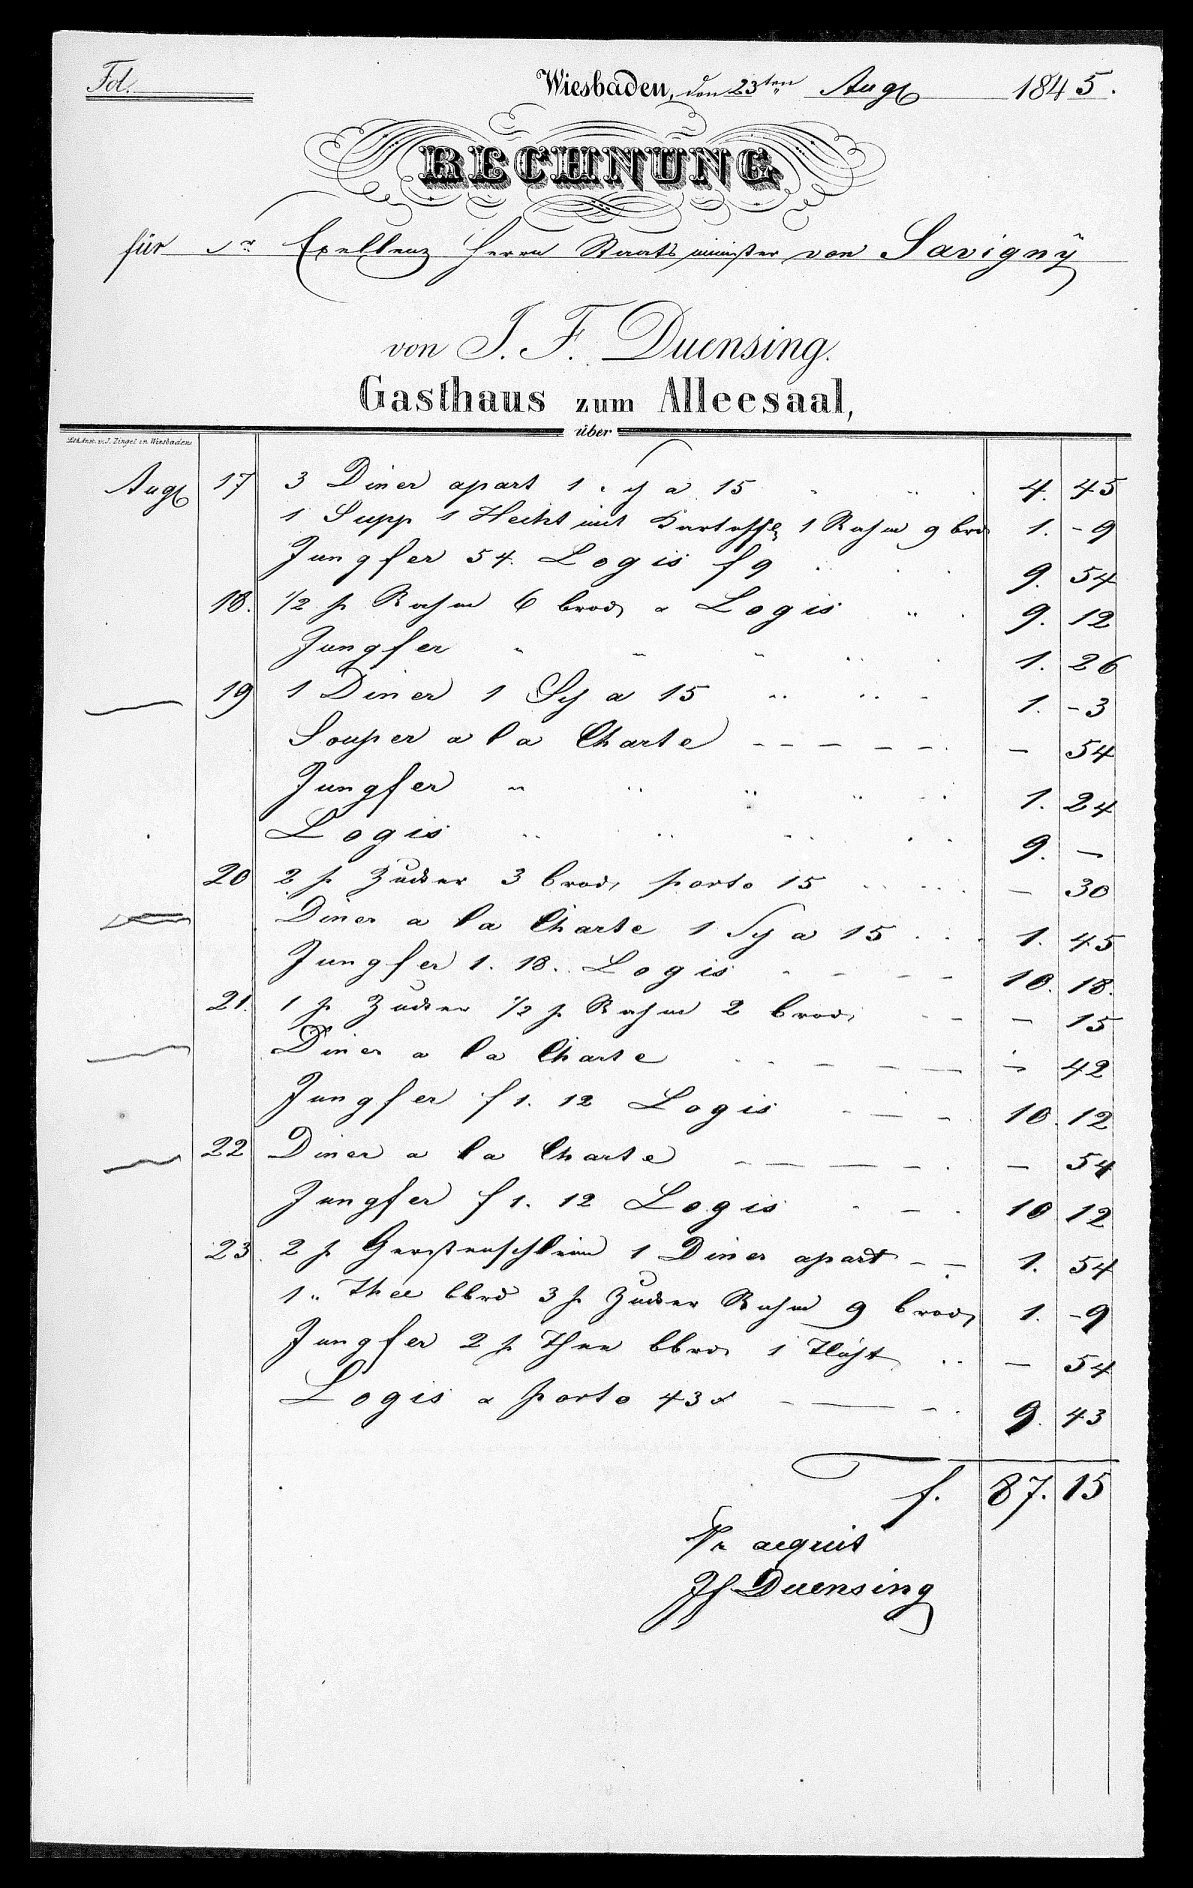 Fol.
Wiesbaden, den 23ten Aug 1845.
RECHNUNG
für Sr Exellenz Herrn Staatsminister von Savigny
von J. F. Duensing.
Gasthaus zum Alleesaal,
über
Lith. Anst. v. J. Zingel in Wiesbaden
Aug 17 3 Diner apart 1 a 15 4. 45
1 Supp 1 Hecht mit Kartoffl 1 Rahm 9 brod 1. - 9
Jungfer 54. Logis f 9 9. 54
18. 1/2 p Rahm 6 brod Logis 9. 12
Jungfer 1. 26
19 1 Diner 1 a 15 1. - 3
Souper a la Charte - 54
Jungfer 1. 24
Logis 9. -
20 2 p Zucker 3 brod, porto 15 - 30
Diner a la Charte 1 a 15 1. 45
Jungfer 1. 18. Logis 10. 18.
21. 1 p Zucker 1/2 p Rahm 2 brod, - 15
Diner a la Charte - 42
Jungfer f 1. 12 Logis 10. 12
22 Diner a la Charte - 54
Jungfer f 1. 12 Logis 10 12
23. 2 p Gerstenschleim 1 Diner apart 1. 54
1 Thee bbrd 3 p Zucker Rahm 9 brod 1. - 9
Jungfer 2 p Thee bbrd 1 - 54
Logis a porto 43 x 9. 43
f. 87. 15
Pr acquit
JF Duensing